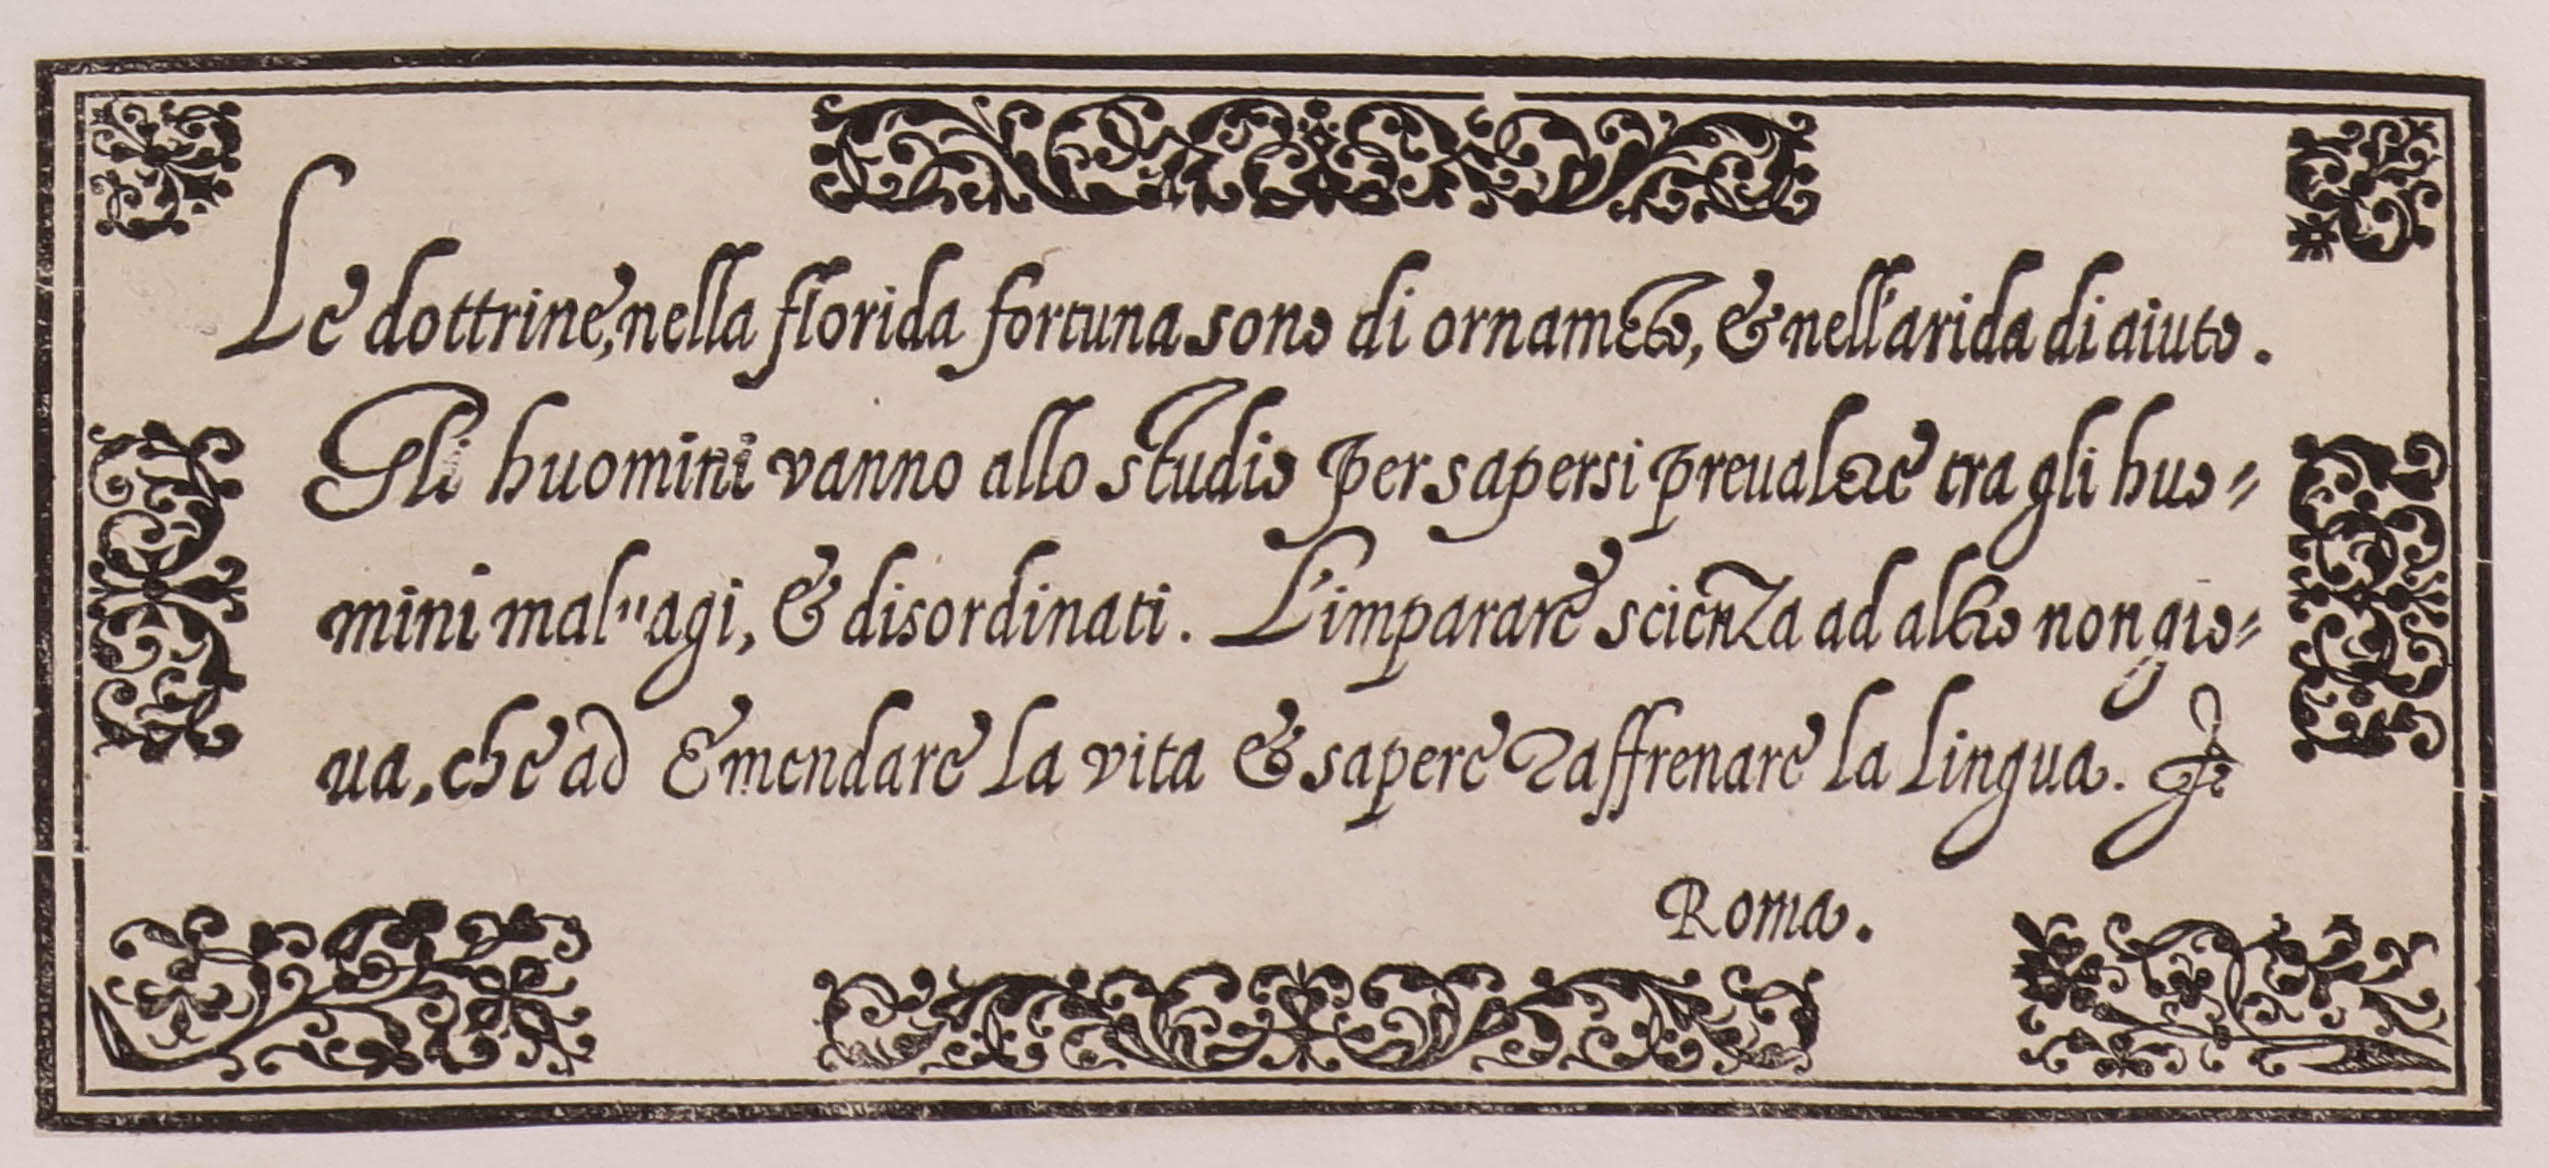 Le dottrine, nella florida fortuna sono di ornamēto, & nell'arida di aiuto.
Gli huomini vanno allo studio per sapersi preualere tra gli huo=
mini maluagi, & disordinati. L'imparare scienza ad altro non gio=
ua, che ad Emendare la vita & sapere raffrenare la lingua.
Roma.